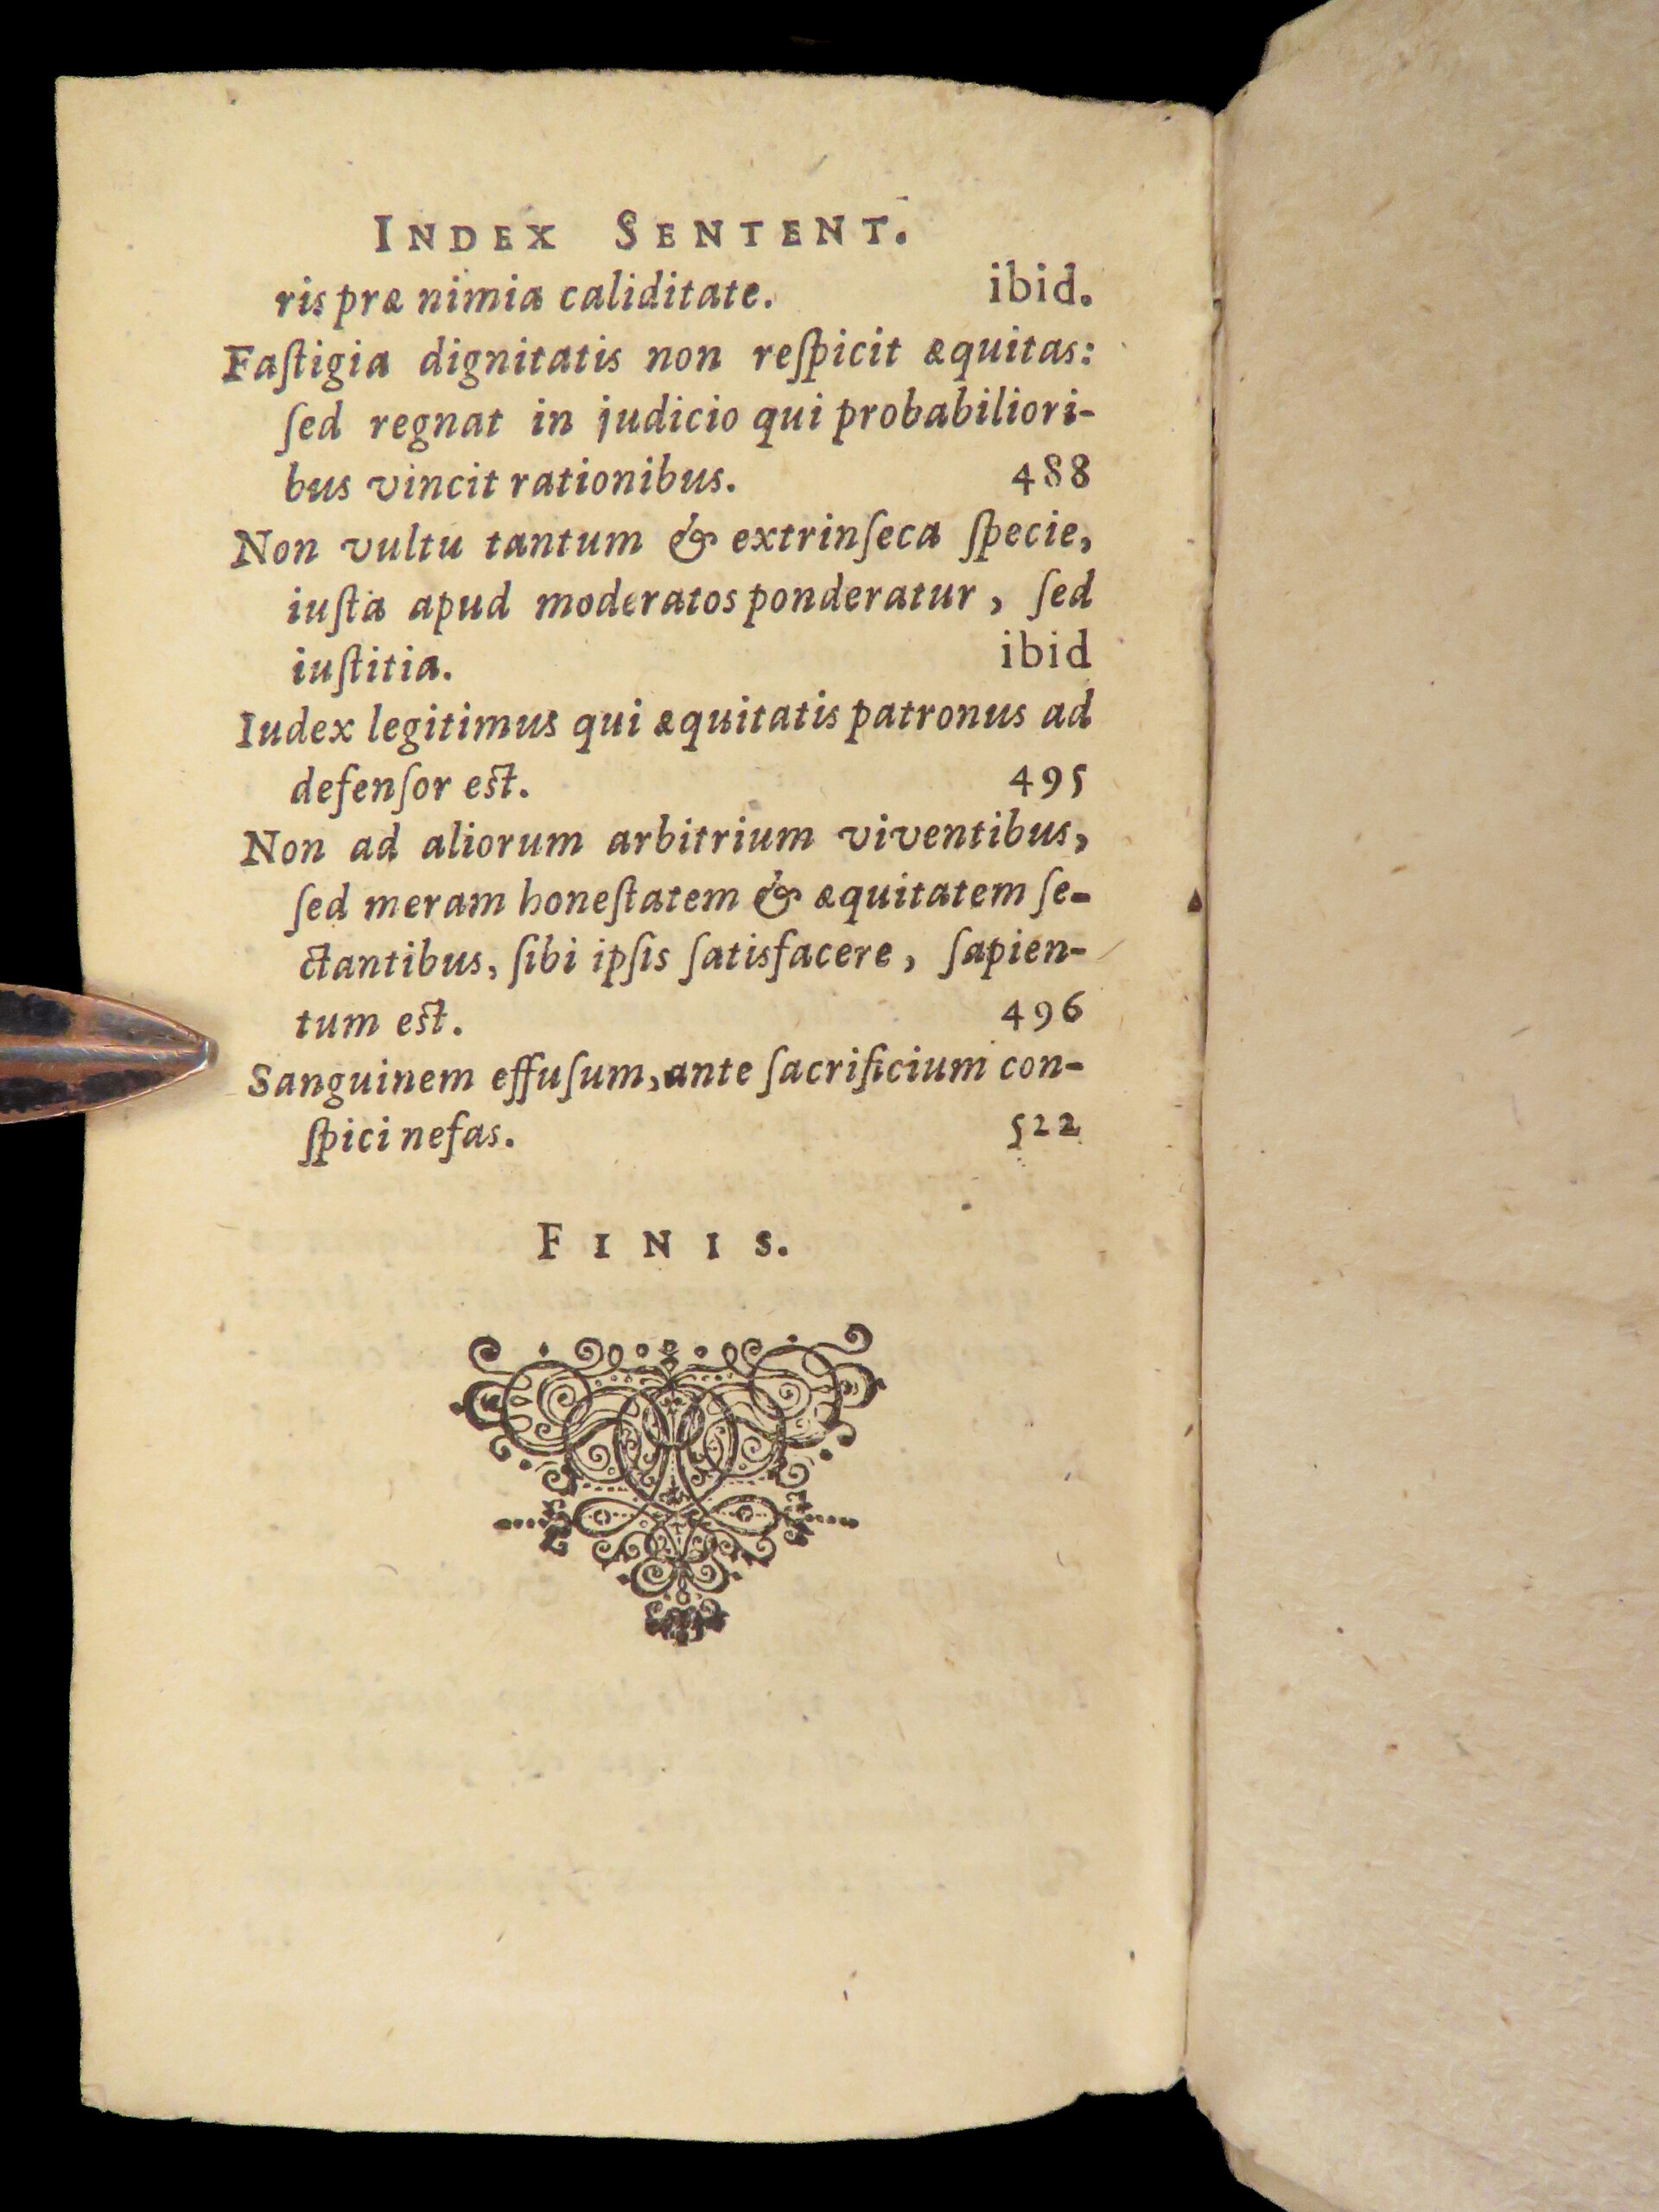 INDEX SENTENT.
ris præ nimia caliditate. ibid.
Faſtigia dignitatis non reſpicit æquitas:
ſed regnat in judicio qui probabiliori-
bus vincit rationibus. 488
Non vultu tantum & extrinſeca ſpecie,
iuſta apud moderatos ponderatur, ſed
iuſtitia. ibid
Iudex legitimus qui æquitatis patronus ad
defenſor eſt. 495
Non ad aliorum arbitrium viventibus,
ſed meram honeſtatem & æquitatem ſe-
ctantibus, ſibi ipſis ſatisfacere, ſapien-
tum eſt. 496
Sanguinem effuſum, ante ſacrificium con-
ſpici nefas. 522
FINIS.